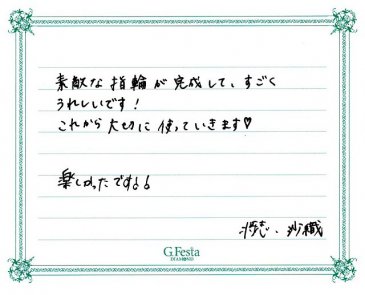 素敵な指輪が完成して、すごく
うれしいです!
これから大切に使っていきます♡
楽しかったです!!
沙織
G.Festa
DIAMOND